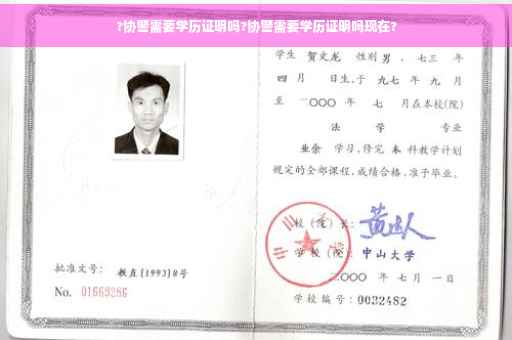 ?协警需要学历证明吗?协警需要学历证明吗现在?
学生 贺文龙 性别 男 、七三 年
四 月 日生,于 九七 年 九 月
至 二〇〇〇 年 七 月在本校(院)
法 学 专业
业余 学习,修完 本 科教学计划
规定的全部课程,成绩合格,准予毕业。
校(院)长:
学校(院): 中山大学
二〇〇〇 年 七 月 一 日
学校编号: 0032482
批准文号: 教直[1993]8号
No. 01669286